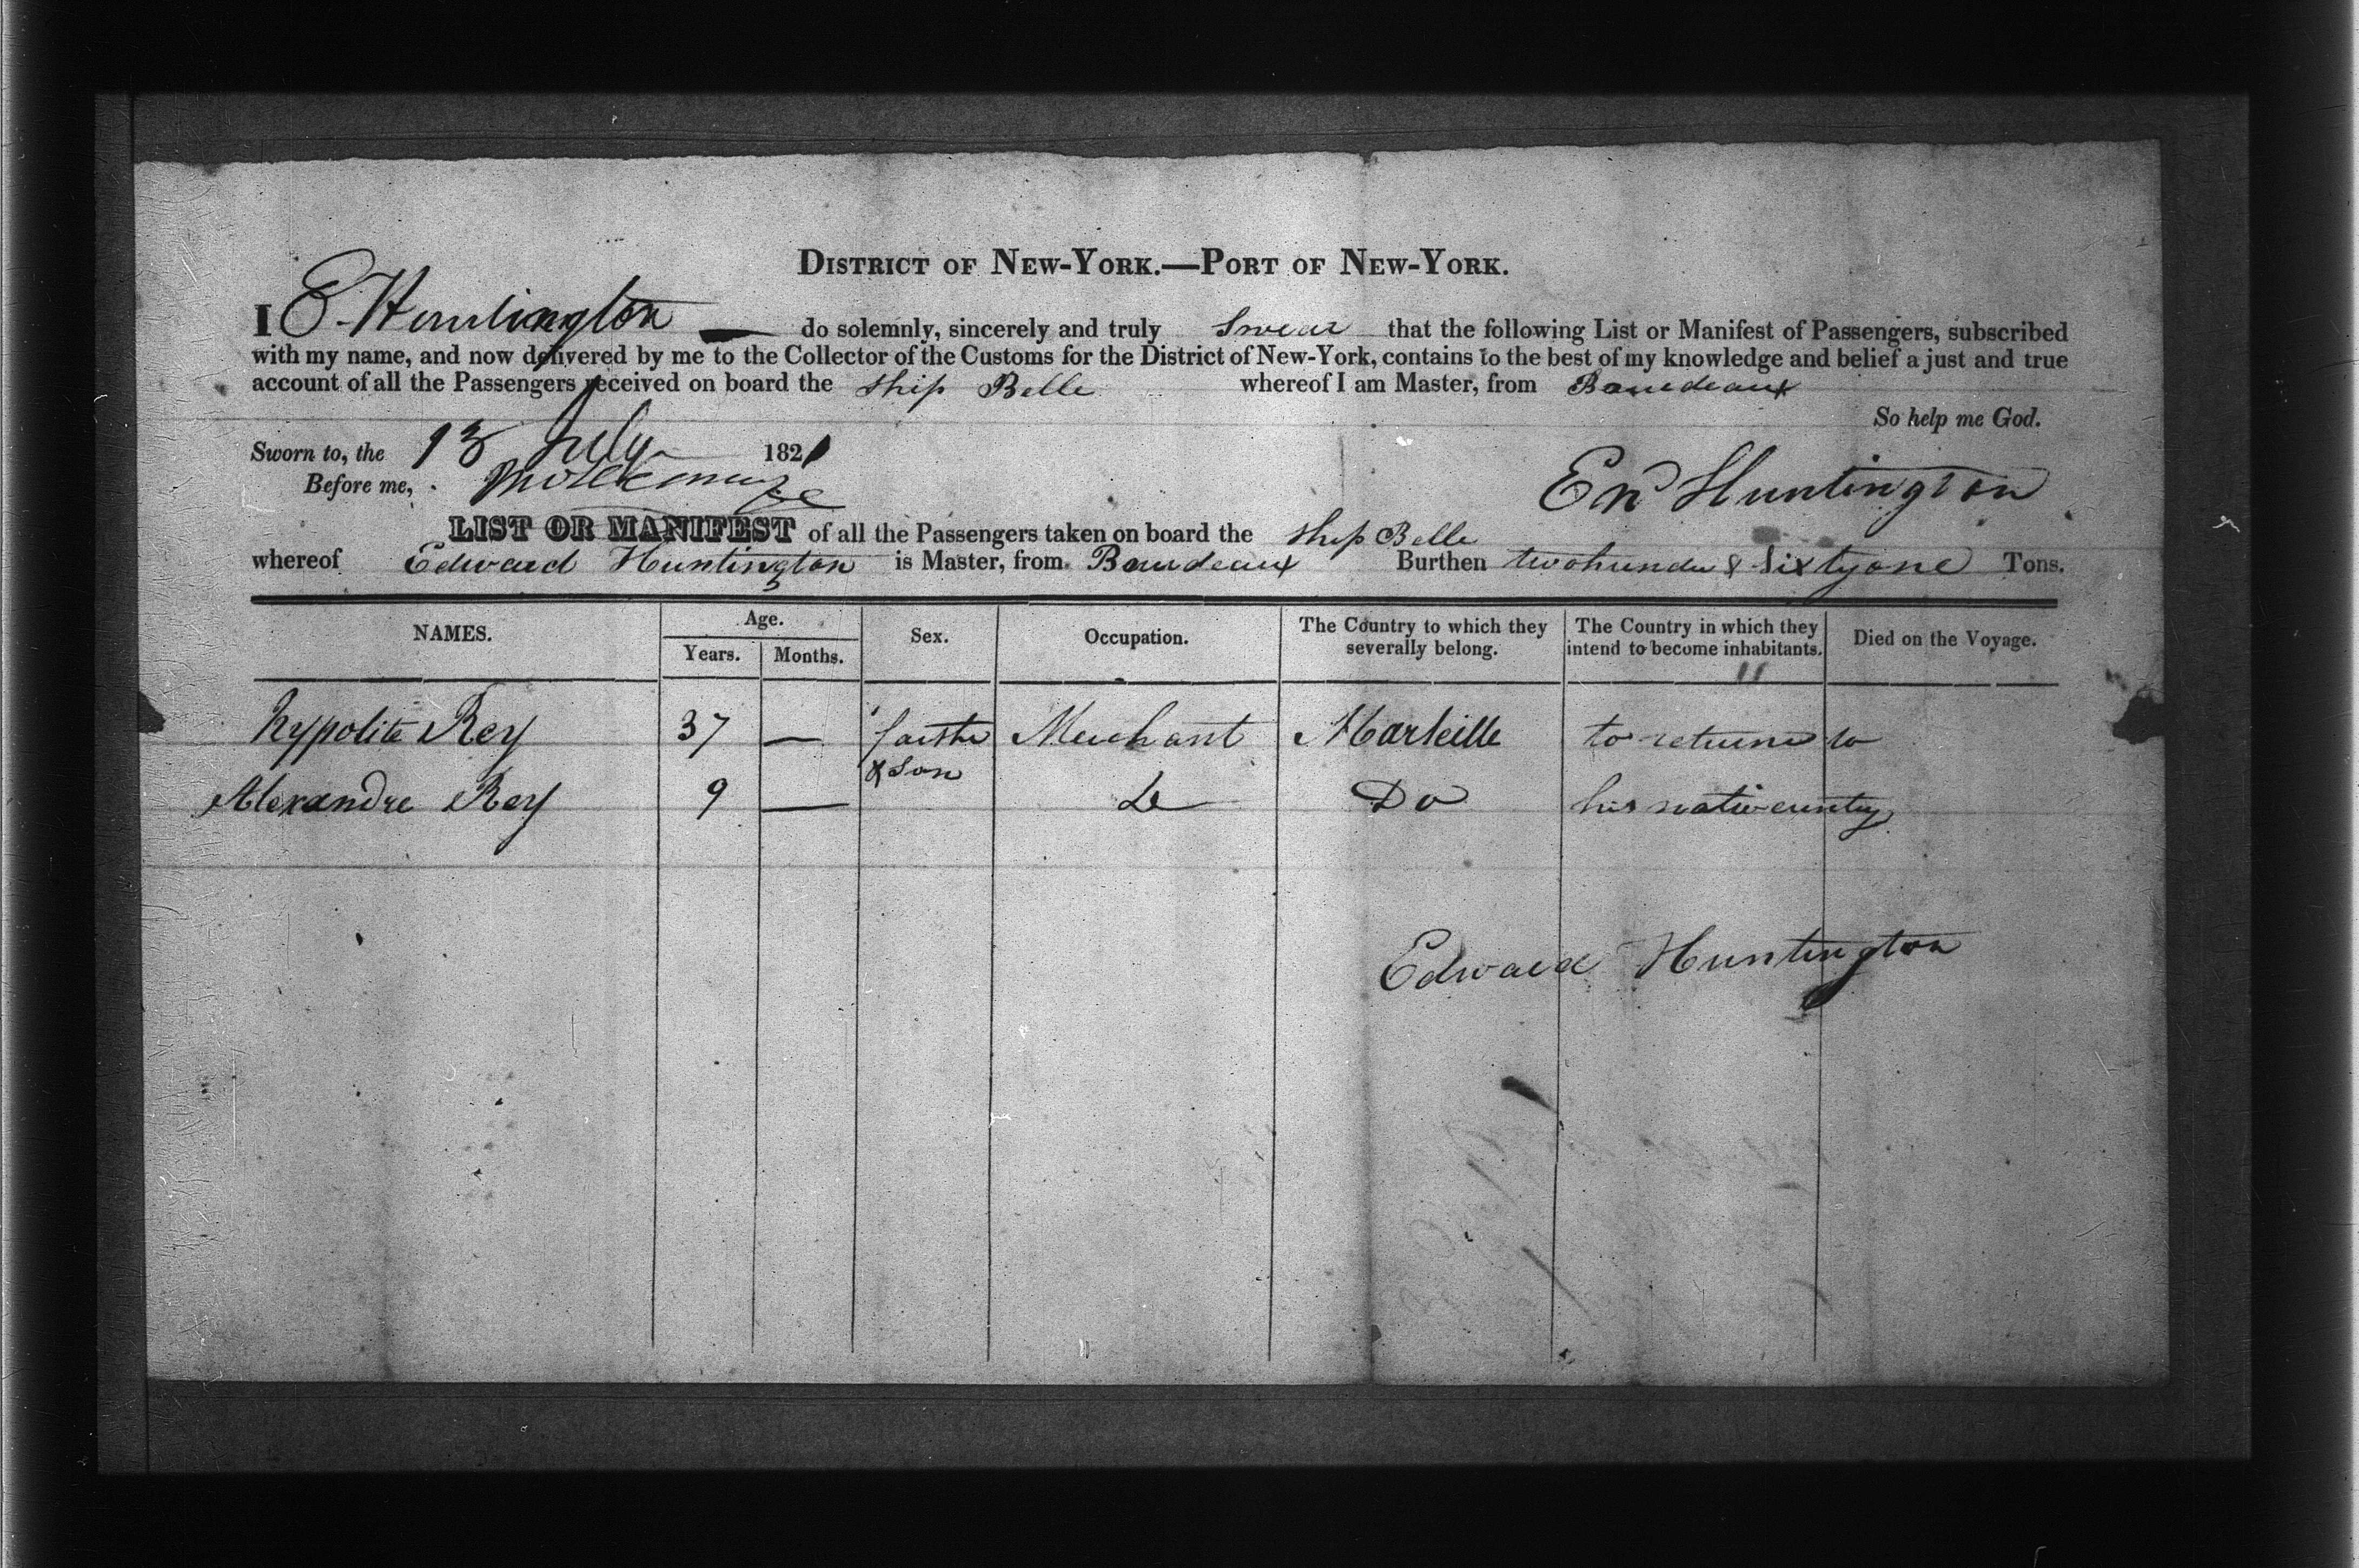 DISTRICT OF NEW-YORK.—PORT OF NEW-YORK.
I E Huntington — do solemnly, sincerely and truly Swear that the following List or Manifest of Passengers, subscribed
with my name, and now delivered by me to the Collector of the Customs for the District of New-York, contains to the best of my knowledge and belief a just and true
account of all the Passengers received on board the Ship Belle whereof I am Master, from Bourdeaux
So help me God.
Sworn to, the 13 July 1821
Before me,
Ed Huntington
LIST OR MANIFEST of all the Passengers taken on board the Ship Belle
whereof Edward Huntington is Master, from Bourdeaux Burthen two hundred & Sixty one Tons.
NAMES. Age. Years. Months. Sex. Occupation. The Country to which they severally belong. The Country in which they intend to become inhabitants. Died on the Voyage.
hypolite Rey 37 — faither Merchant Marseille to return to
& Son
Alexandre Rey 9 — Do Do his native cuntry
Edward Huntington